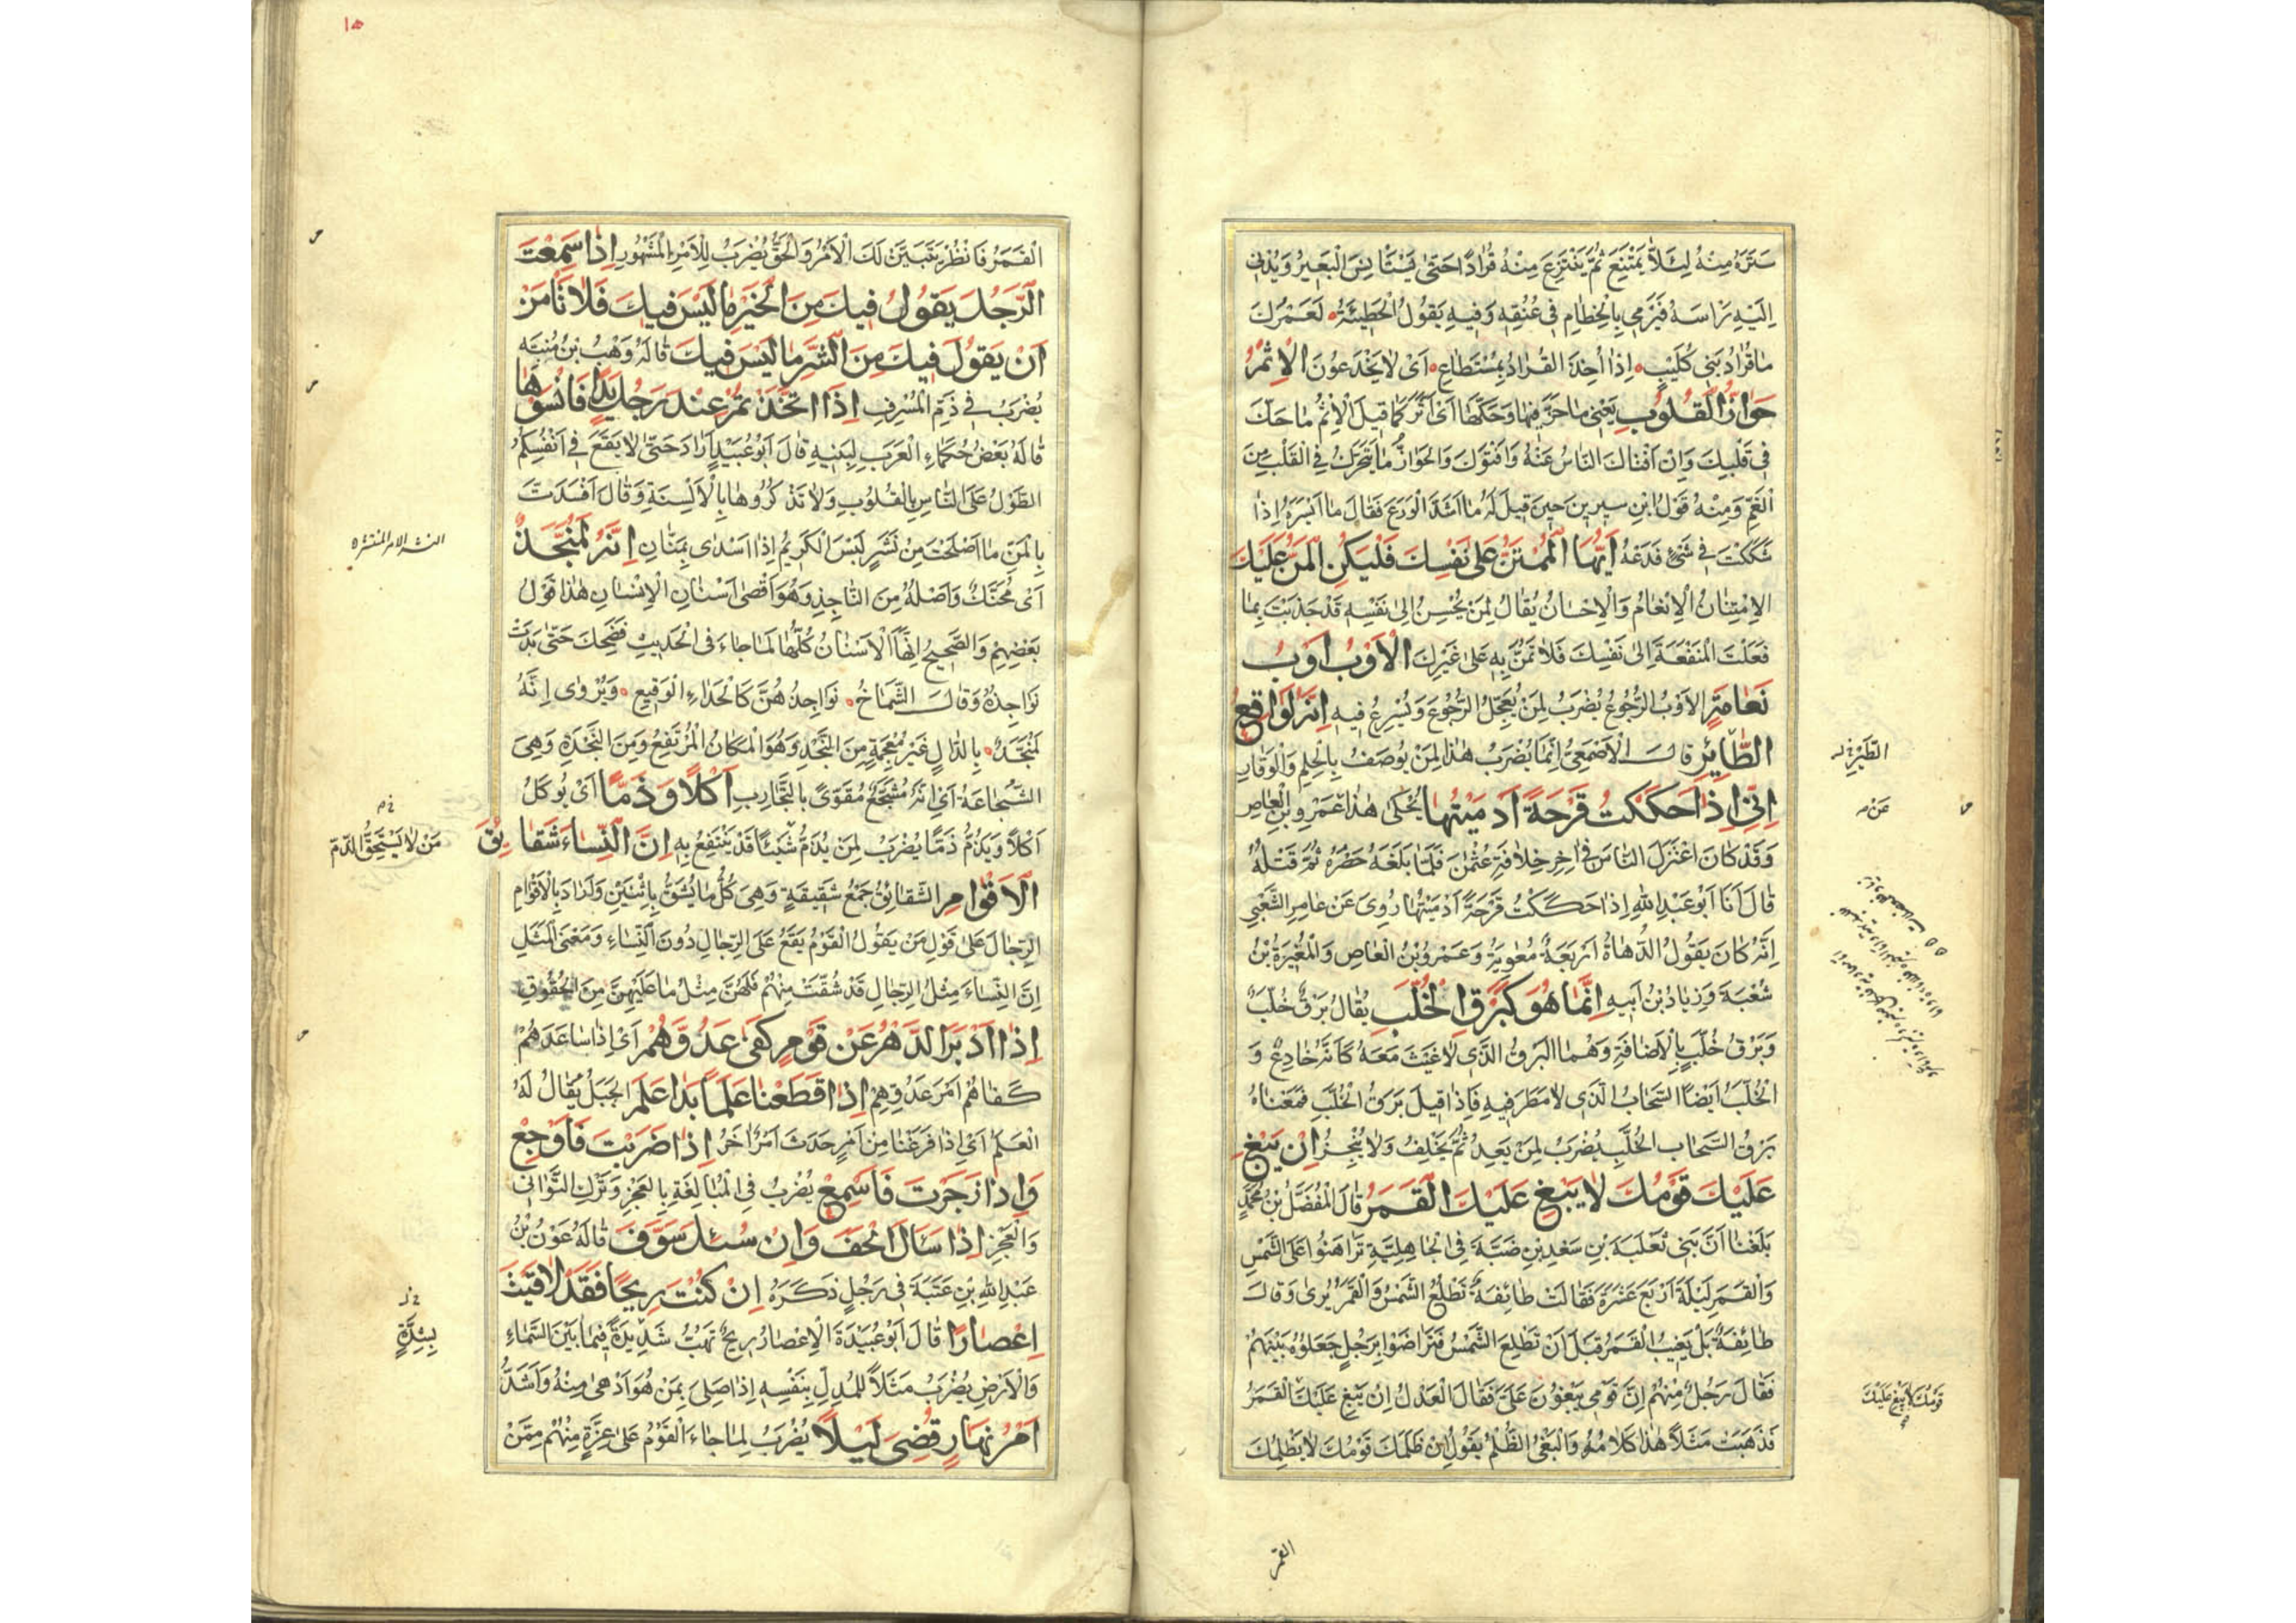 سَتَرَهُ مِنْهُ لِئَلَّا يَمْتَنِعَ ثُمَّ يَنْتَزِعَ مِنْهُ قُرَادًا حَتّٰى يَسْتَأْنِسَ الْبَعِيرُ وَيُدْنِيَ
اِلَيْهِ رَأْسَهُ فَيَرْمِيَ بِالْخِطَامِ فِي عُنُقِهِ وَفِيهِ يَقُولُ الْحُطَيْئَةُ لَعَمْرُكَ
مَا قُرَادُ بَنِي كُلَيْبٍ اِذَا اُخِذَ الْقُرَادُ بِمُسْتَطَاعِ اَيْ لَا يُخْدَعُونَ الْاِثْمُ
حَوَازُّ الْقُلُوبِ يَعْنِي مَا حَزَّ فِيهَا وَحَكَّهَا اَيْ اَثَّرَ كَمَا قِيلَ الْاِثْمُ مَا حَكَّ
فِي قَلْبِكَ وَاِنْ اَفْتَاكَ النَّاسُ عَنْهُ وَاَفْتَوْكَ وَالْحَوَازُّ مَا يَتَحَرَّكُ فِي الْقَلْبِ مِنَ
الْغَمِّ وَمِنْهُ قَوْلُ ابْنِ سِيرِينَ حِينَ قِيلَ لَهُ مَا اَشَدَّ الْوَرَعَ فَقَالَ مَا اَيْسَرَهُ اِذَا
شَكَكْتَ فِي شَيْءٍ فَدَعْهُ اَيُّهَا الْمُمْتَنُّ عَلَى نَفْسِكَ فَلْيَكُنِ الْمَنُّ عَلَيْكَ
الْاِمْتِنَانُ الْاِنْعَامُ وَالْاِحْسَانُ يُقَالُ لِمَنْ يُحْسِنُ اِلَى نَفْسِهِ قَدْ جَذَبْتَ بِمَا
فَعَلْتَ الْمَنْفَعَةَ اِلَى نَفْسِكَ فَلَا تَمُنَّ بِهِ عَلَى غَيْرِكَ الْاَوْبُ اَوْبُ
نَعَامَةٍ الْاَوْبُ الرُّجُوعُ يُضْرَبُ لِمَنْ يُعَجِّلُ الرُّجُوعَ وَيُسْرِعُ فِيهِ اِنَّهُ لَوَاقِعُ
الطَّائِرِ قَالَ الْاَصْمَعِيُّ اِنَّمَا يُضْرَبُ هٰذَا لِمَنْ يُوصَفُ بِالْحِلْمِ وَالْوَقَارِ
اِنِّي اِذَا حَكَكْتُ قَرْحَةً اَدْمَيْتُهَا يُحْكَى هٰذَا عَمْرِو بْنِ الْعَاصِ
وَقَدْ كَانَ اعْتَزَلَ النَّاسَ فِي اٰخِرِ خِلَافَةِ عُثْمٰنَ فَلَمَّا بَلَغَهُ حَصْرُهُ ثُمَّ قَتْلُهُ
قَالَ اَنَا اَبُو عَبْدِ اللهِ اِذَا حَكَكْتُ قَرْحَةً اَدْمَيْتُهَا رُوِيَ عَنْ عَامِرِ الشَّعْبِيِّ
اَنَّهُ كَانَ يَقُولُ الدُّهَاةُ اَرْبَعَةٌ مُعٰوِيَةُ وَعَمْرُو بْنُ الْعَاصِ وَالْمُغِيرَةُ بْنُ
شُعْبَةَ وَزِيَادُ بْنُ اَبِيهِ اِنَّمَا هُوَ كَبَرْقِ الْخُلَّبِ يُقَالُ بَرْقٌ خُلَّبٌ
وَبَرْقُ خُلَّبٍ بِالْاِضَافَةِ وَهُمَا الْبَرْقُ الَّذِي لَا غَيْثَ مَعَهُ كَاَنَّهُ خَادِعٌ وَ
الْخُلَّبُ اَيْضًا السَّحَابُ الَّذِي لَا مَطَرَ فِيهِ فَاِذَا قِيلَ بَرْقُ الْخُلَّبِ فَمَعْنَاهُ
بَرْقُ السَّحَابِ الْخُلَّبِ يُضْرَبُ لِمَنْ يَعِدُ ثُمَّ يُخْلِفُ وَلَا يُنْجِزُ اِنْ يَبْغِ
عَلَيْكَ قَوْمُكَ لَا يَبْغِ عَلَيْكَ الْقَمَرُ قَالَ الْمُفَضَّلُ بْنُ مُحَمَّدٍ
بَلَغَنَا اَنَّ بَنِي ثَعْلَبَةَ بْنِ سَعْدِ بْنِ ضَبَّةَ فِي الْجَاهِلِيَّةِ تَرَاهَنُوا عَلَى الشَّمْسِ
وَالْقَمَرِ لَيْلَةَ اَرْبَعَ عَشْرَةَ فَقَالَتْ طَائِفَةٌ تَطْلُعُ الشَّمْسُ وَالْقَمَرُ يُرَى وَقَالَ
طَائِفَةٌ بَلْ يَغِيبُ الْقَمَرُ قَبْلَ اَنْ تَطْلُعَ الشَّمْسُ فَتَرَاضَوْا بِرَجُلٍ جَعَلُوهُ بَيْنَهُمْ
فَقَالَ رَجُلٌ مِنْهُمْ اِنَّ قَوْمِي يَبْغُونَ عَلَيَّ فَقَالَ الْعَدْلُ اِنْ يَبْغِ عَلَيْكَ الْقَمَرُ
فَذَهَبَتْ مَثَلًا هٰذَا كَلَامُهُ وَالْبَغْيُ الظُّلْمُ يَقُولُ اِنْ ظَلَمَكَ قَوْمُكَ لَا يَظْلِمُكَ
الطَّيْرِ
عَنْ
قَوْمُكَ لَا يَبْغِ عَلَيْكَ
القمر
١٥
الْقَمَرُ فَانْظُرْ يَتَبَيَّنْ لَكَ الْاَمْرُ وَالْحَقُّ يُضْرَبُ لِلْاَمْرِ الْمَشْهُورِ اِذَا سَمِعْتَ
الرَّجُلَ يَقُولُ فِيكَ مِنَ الْخَيْرِ مَا لَيْسَ فِيكَ فَلَا تَأْمَنْ
اَنْ يَقُولَ فِيكَ مِنَ الشَّرِّ مَا لَيْسَ فِيكَ قَالَهُ وَهْبُ بْنُ مُنَبِّه
يُضْرَبُ فِي ذَمِّ الْمُسْرِفِ اِذَا اتَّخَذْتُمْ عِنْدَ رَجُلٍ يَدًا فَانْسَوْهَا
قَالَهُ بَعْضُ حُكَمَاءِ الْعَرَبِ لِبَنِيهِ قَالَ اَبُو عُبَيْدٍ اَرَادَ حَتّٰى لَا يَقَعَ فِي اَنْفُسِكُمْ
الطَّوْلُ عَلَى النَّاسِ بِالْقُلُوبِ وَلَا تَذْكُرُوهَا بِالْاَلْسِنَةِ وَقَالَ اَفْسَدْتَ
بِالْمَنِّ مَا اَصْلَحْتَ مِنْ نَشَرٍ لَيْسَ الْكَرِيمُ اِذَا اَسْدَى بِمَنَّانِ اِنَّهُ لَمُنَجَّذٌ
اَيْ مُحَنَّكٌ وَاَصْلُهُ مِنَ النَّاجِذِ وَهُوَ اَقْصَى اَسْنَانِ الْاِنْسَانِ هٰذَا قَوْلُ
بَعْضِهِمْ وَالصَّحِيحُ اِنَّهَا الْاَسْنَانُ كُلُّهَا لَمَا جَاءَ فِي الْحَدِيثِ فَضَحِكَ حَتّٰى بَدَتْ
نَوَاجِذُهُ وَقَالَ الشَّمَّاخُ نَوَاجِذُهُنَّ كَالْحَدَاءِ الْوَقِيعِ وَيُرْوَى اِنَّهُ
لَمُنَجَّدٌ بِالدَّالِ غَيْرِ مُعْجَمَةٍ مِنَ النَّجْدِ وَهُوَ الْمَكَانُ الْمُرْتَفِعُ وَمِنَ النَّجْدَةِ وَهِيَ
الشَّجَاعَةُ اَيْ اِنَّهُ مُشَجَّعٌ مُقَوًّى بِالتَّجَارِبِ اَكْلًا وَذَمًّا اَيْ يُوكَلُ
اَكْلًا وَيُذَمُّ ذَمًّا يُضْرَبُ لِمَنْ يُذَمُّ شَيْئًا قَدْ يَنْتَفِعُ بِهِ اِنَّ النِّسَاءَ شَقَائِقُ
الْاَقْوَامِ الشَّقَائِقُ جَمْعُ شَقِيقَةٍ وَهِيَ كُلُّ مَا يُشَقُّ بِاثْنَيْنِ وَاَرَادَ بِالْاَقْوَامِ
الرِّجَالَ عَلَى قَوْلِ مَنْ يَقُولُ الْقَوْمُ يَقَعُ عَلَى الرِّجَالِ دُونَ النِّسَاءِ وَمَعْنَى الْمَثَلِ
اِنَّ النِّسَاءَ مِثْلُ الرِّجَالِ قَدْ شُقَّتْ مِنْهُمْ فَلَهُنَّ مِثْلُ مَا عَلَيْهِنَّ مِنَ الْحُقُوقِ
اِذَا اَدْبَرَ الدَّهْرُ عَنْ قَوْمٍ كَفَى عَدُوَّهُمْ اَيْ اِذَا سَاعَدَهُمْ
كَفَاهُمْ اَمْرَ عَدُوِّهِمْ اِذَا قَطَعْنَا عَلَمًا بَدَا عَلَمٌ الْجَبَلُ يُقَالُ لَهُ
الْعَلَمُ اَيْ اِذَا فَرَغْنَا مِنْ اَمْرٍ حَدَثَ اَمْرٌ اٰخَرُ اِذَا ضَرَبْتَ فَاَوْجِعْ
وَاِذَا زَجَرْتَ فَاَسْمِعْ يُضْرَبُ فِي الْمُبَالَغَةِ بِالْعَجْزِ وَتَرْكِ التَّوَانِي
وَالْعَجْزِ اِذَا سَاَلَ اَلْحَفَ وَاِنْ سُئِلَ سَوَّفَ قَالَهُ عَوْنُ بْنُ
عَبْدِ اللهِ بْنِ عُتْبَةَ فِي رَجُلٍ ذَكَرَهُ اِنْ كُنْتَ رِيحًا فَقَدْ لَاقَيْتَ
اِعْصَارًا قَالَ اَبُو عُبَيْدَةَ الْاِعْصَارُ رِيحٌ تَهُبُّ شَدِيدَةً فِيمَا بَيْنَ السَّمَاءِ
وَالْاَرْضِ يُضْرَبُ مَثَلًا لِلْمُدِلِّ بِنَفْسِهِ اِذَا صَلِيَ بِمَنْ هُوَ اَدْهَى مِنْهُ وَاَشَدُّ
اَمْرُ نَهَارٍ قُضِيَ لَيْلًا يُضْرَبُ لِمَا جَاءَ الْقَوْمُ عَلَى غِرَّةٍ مِنْهُمْ مِمَّنْ
النشر الامر المنتشرة
مَنْ لَا يَسْتَحِقُّ الذَّمَّ
بِشِدَّةٍ